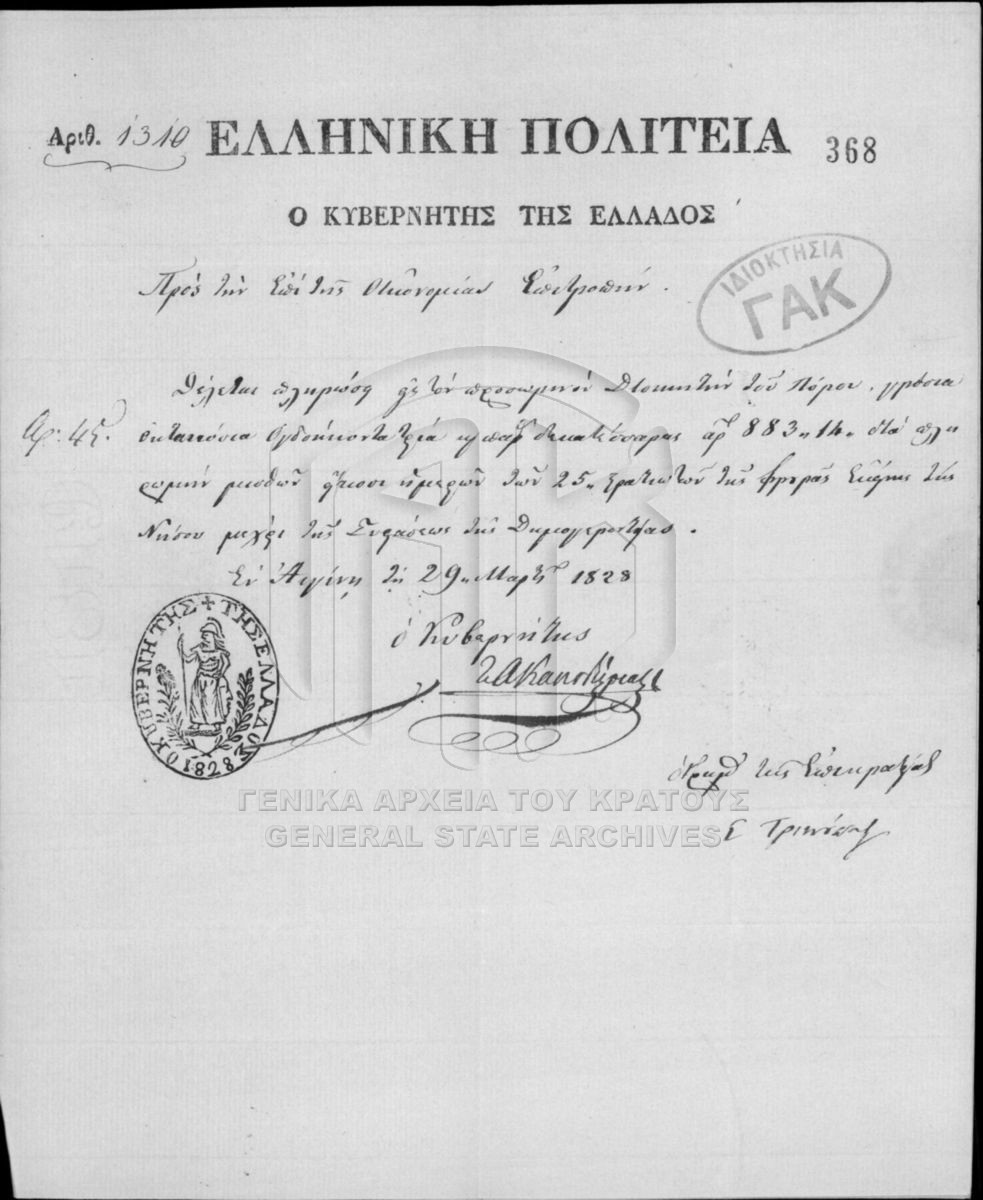 Αριθ. 1310 ΕΛΛΗΝΙΚΗ ΠΟΛΙΤΕΙΑ 368
Ο ΚΥΒΕΡΝΗΤΗΣ ΤΗΣ ΕΛΛΑΔΟΣ
ΙΔΙΟΚΤΗΣΙΑ
ΓΑΚ
Πρὸς τὴν ἐπὶ τῆς Οἰκονομίας Ἐπιτροπήν.
Θέλεται πληρώσῃ τὸν προσωρινὸν Διοικητὴν τοῦ Πόρου, γρόσια
Ἀρ: 45.
ὀκτακόσια ὀγδοήκοντα τρία δεκατέσσαρας ἀρ 883,,14,, διὰ πλη
ρωμὴν μισθῶν εἴκοσι ἡμερῶν τῶν 25,, στρατιωτῶν τῆς φρουρᾶς τῆς
Νήσου μέχρι τῆς συστάσεως τῆς Δημογεροντίας.
Ἐν Αἰγίνῃ τῇ 29,, Μαρτ 1828
ὁ Κυβερνήτης
Ι Α Καποδίστριας
Ο ΚΥΒΕΡΝΗΤΗΣ ΤΗΣ ΕΛΛΑΔΟΣ
1828
τῆς Ἐπικρατείας
Σ Τρικούπης
ΓΕΝΙΚΑ ΑΡΧΕΙΑ ΤΟΥ ΚΡΑΤΟΥΣ
GENERAL STATE ARCHIVES